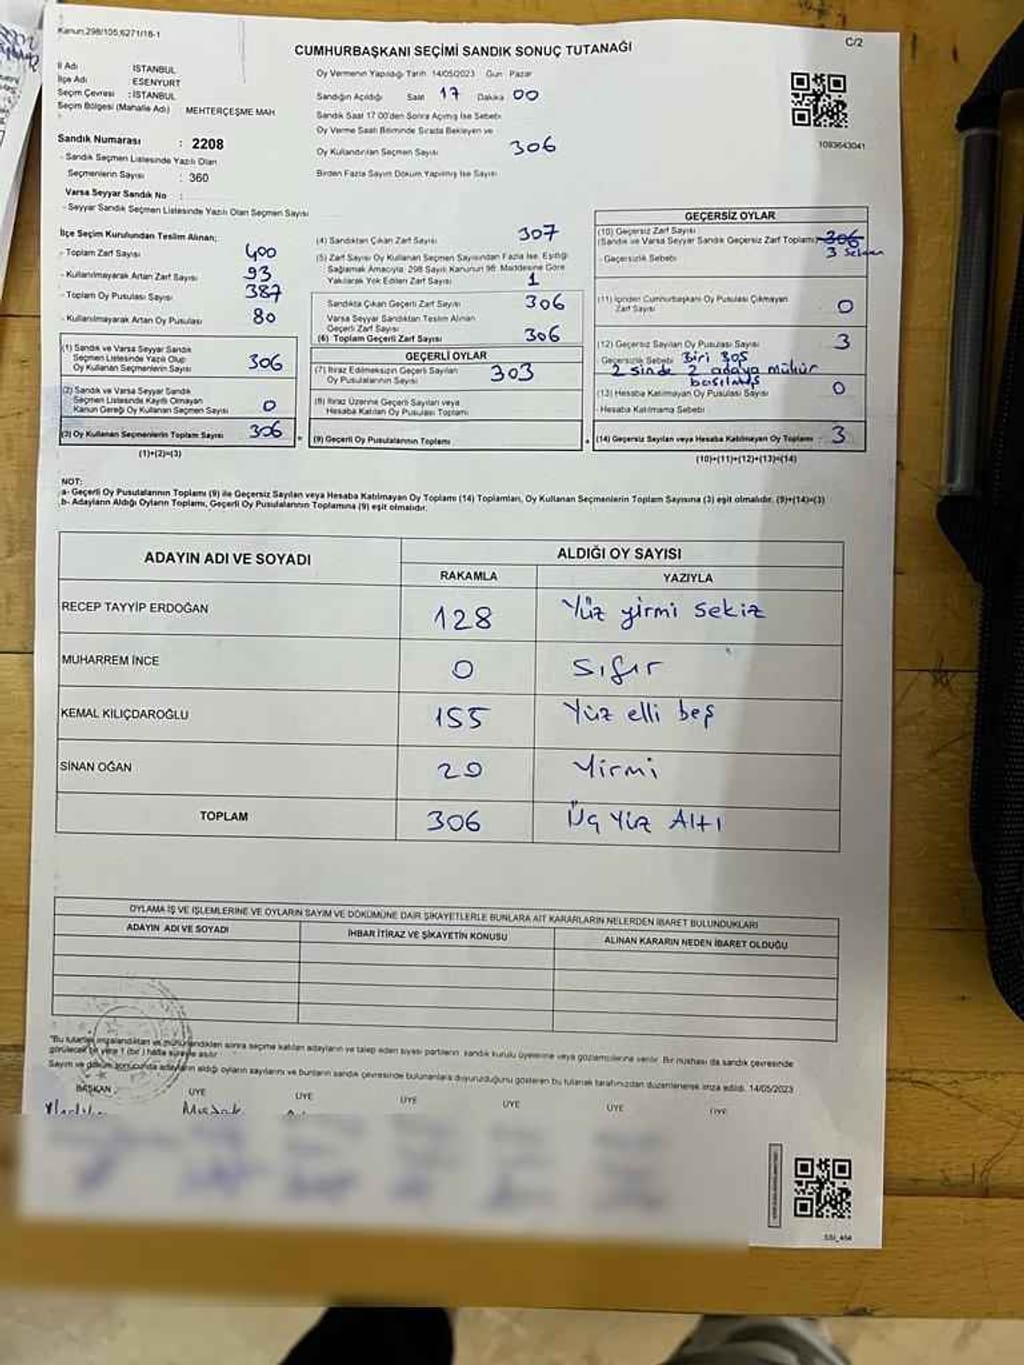 Kanun;298/105,6271/18-1
C/2
CUMHURBAŞKANI SEÇİMİ SANDIK SONUÇ TUTANAĞI
İl Adı İSTANBUL
İlçe Adı ESENYURT
Seçim Çevresi : İSTANBUL
Seçim Bölgesi (Mahalle Adı) MEHTERÇEŞME MAH
Sandık Numarası : 2208
- Sandık Seçmen Listesinde Yazılı Olan
Seçmenlerin Sayısı : 360
Varsa Seyyar Sandık No :
- Seyyar Sandık Seçmen Listesinde Yazılı Olan Seçmen Sayısı
Oy Vermenin Yapıldığı Tarih 14/05/2023 Gün Pazar
Sandığın Açıldığı Saat 17 Dakika 00
Sandık Saat 17 00'den Sonra Açılmış İse Sebebi
Oy Verme Saati Bitiminde Sırada Bekleyen ve
Oy Kullandırılan Seçmen Sayısı 306
Birden Fazla Sayım Döküm Yapılmış İse Sayısı
1093643041
İlçe Seçim Kurulundan Teslim Alınan;
- Toplam Zarf Sayısı 400
- Kullanılmayarak Artan Zarf Sayısı 93
- Toplam Oy Pusulası Sayısı 387
- Kullanılmayarak Artan Oy Pusulası 80
(1) Sandık ve Varsa Seyyar Sandık
Seçmen Listesinde Yazılı Olup
Oy Kullanan Seçmenlerin Sayısı 306
(2) Sandık ve Varsa Seyyar Sandık
Seçmen Listesinde Kayıtlı Olmayan
Kanun Gereği Oy Kullanan Seçmen Sayısı 0
(3) Oy Kullanan Seçmenlerin Toplam Sayısı 306
(1)+(2)=(3)
(4) Sandıktan Çıkan Zarf Sayısı 307
(5) Zarf Sayısı Oy Kullanan Seçmen Sayısından Fazla İse, Eşitliği
Sağlamak Amacıyla 298 Sayılı Kanunun 98. Maddesine Göre
Yakılarak Yok Edilen Zarf Sayısı 1
Sandıkta Çıkan Geçerli Zarf Sayısı 306
Varsa Seyyar Sandıktan Teslim Alınan
Geçerli Zarf Sayısı
(6) Toplam Geçerli Zarf Sayısı 306
GEÇERLİ OYLAR
(7) İtiraz Edilmeksizin Geçerli Sayılan
Oy Pusulalarının Sayısı 303
(8) İtiraz Üzerine Geçerli Sayılan veya
Hesaba Katılan Oy Pusulası Toplamı
(9) Geçerli Oy Pusulalarının Toplamı
GEÇERSİZ OYLAR
(10) Geçersiz Zarf Sayısı
(Sandık ve Varsa Seyyar Sandık Geçersiz Zarf Toplamı) 306
- Geçersizlik Sebebi 3
(11) İçinden Cumhurbaşkanı Oy Pusulası Çıkmayan
Zarf Sayısı 0
(12) Geçersiz Sayılan Oy Pusulası Sayısı 3
Geçersizlik Sebebi Biri boş
2 sinde 2 adaya mühür
basılmış
(13) Hesaba Katılmayan Oy Pusulası Sayısı 0
- Hesaba Katılmama Sebebi
(14) Geçersiz Sayılan veya Hesaba Katılmayan Oy Toplamı 3
(10)+(11)+(12)+(13)=(14)
NOT:
a- Geçerli Oy Pusulalarının Toplamı (9) ile Geçersiz Sayılan veya Hesaba Katılmayan Oy Toplamı (14) Toplamları, Oy Kullanan Seçmenlerin Toplam Sayısına (3) eşit olmalıdır. (9)+(14)=(3)
b- Adayların Aldığı Oyların Toplamı, Geçerli Oy Pusulalarının Toplamına (9) eşit olmalıdır.
ADAYIN ADI VE SOYADI ALDIĞI OY SAYISI
RAKAMLA YAZIYLA
RECEP TAYYİP ERDOĞAN 128 Yüz yirmi sekiz
MUHARREM İNCE 0 Sıfır
KEMAL KILIÇDAROĞLU 155 Yüz elli beş
SİNAN OĞAN 20 Yirmi
TOPLAM 306 Üç Yüz Altı
OYLAMA İŞ VE İŞLEMLERİNE VE OYLARIN SAYIM VE DÖKÜMÜNE DAİR ŞİKAYETLERLE BUNLARA AİT KARARLARIN NELERDEN İBARET BULUNDUKLARI
ADAYIN ADI VE SOYADI İHBAR İTİRAZ VE ŞİKAYETİN KONUSU ALINAN KARARIN NEDEN İBARET OLDUĞU
"Bu tutanak imzalandıktan ve mühürlendikten sonra seçime katılan adayların ve talep eden siyasi partilerin sandık kurulu üyelerine veya gözlemcilerine verilir. Bir nüshası da sandık çevresinde
görülecek bir yere 1 (bir) hafta süreyle asılır
Sayım ve döküm sonucunda adayların aldığı oyların sayılarını ve bunların sandık çevresinde bulunanlara duyurulduğunu gösteren bu tutanak tarafımızdan düzenlenerek imza edildi. 14/05/2023
BAŞKAN ÜYE ÜYE ÜYE ÜYE ÜYE ÜYE
SSI_464